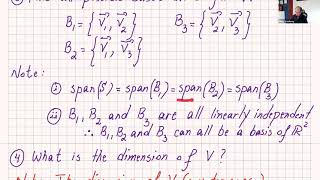 B₁ = {v⃗₁, v⃗₂} B₃ = {v⃗₂, v⃗₃}
B₂ = {v⃗₁, v⃗₃}
Note:
(i) span(S) = span(B₁) = span(B₂) = span(B₃)
(ii) B₁, B₂ and B₃ are all linearly independent
∴ B₁, B₂ and B₃ can all be a basis of ℝ²
(4) What is the dimension of V?